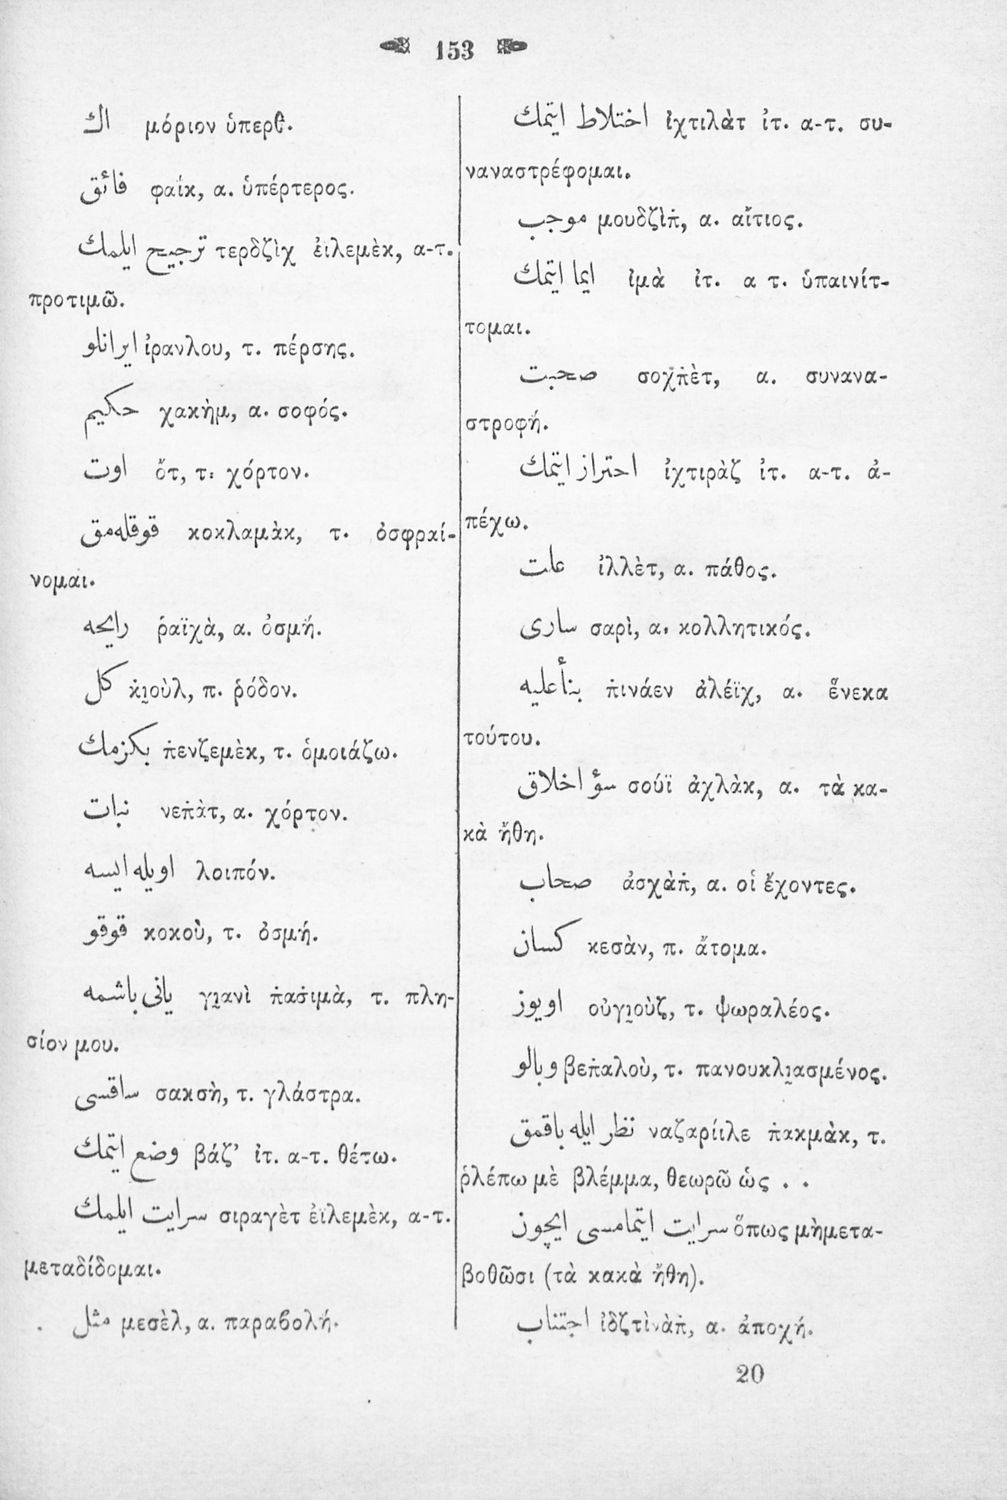 153
اك μόριον ὑπερθ.
فائق φαίκ, α. ὑπέρτερος.
ترجيح ايلمك τερδζὶχ ἐιλεμὲκ, α-τ.
προτιμῶ.
ايرانلو ἰρανλου, τ. πέρσης.
حكيم χακὴμ, α. σοφός.
اوت ὄτ, τ. χόρτον.
قوقله‌مق κοκλαμὰκ, τ. ὀσφραί-
νομαι.
رايحه ῥαϊχὰ, α. ὀσμή.
كل κ̇ι̯οὺλ, π. ῥόδον.
بكزمك π̇ενζεμὲκ, τ. ὁμοιάζω.
نبات νεπ̇ὰτ, α. χόρτον.
اويله ايسه λοιπόν.
قوقو κοκοὺ, τ. ὀσμή.
يانى باشمه γι̯ανὶ π̇ασ̇ιμὰ, τ. πλη-
σίον μου.
ساقسى σακσὴ, τ. γλάστρα.
وضع ايتمك βάζ’ ἰτ. α-τ. θέτω.
سرايت ايلمك σιραγὲτ ἐϊλεμὲκ, α-τ.
μεταδίδομαι.
مثل μεσὲλ, α. παραβολή.
اختلاط ايتمك ἰχτιλὰτ ἰτ. α-τ. συ-
ναναστρέφομαι.
موجب μουδζὶπ̇, α. αἴτιος.
ايما ايتمك ἰμὰ ἰτ. α τ. ὑπαινίτ-
τομαι.
صحبت σοχπ̇ὲτ, α. συνανα-
στροφή.
احتراز ايتمك ἰχτιρὰζ ἰτ. α-τ. ἀ-
πέχω.
علت ἰλλὲτ, α. πάθος.
سارى σαρὶ, α. κολλητικός.
بنأعليه π̇ινάεν ἀλέϊχ, α. ἕνεκα
τούτου.
سوٴ اخلاق σούϊ ἀχλὰκ, α. τὰ κα-
κὰ ἤθη.
صحاب ἀσχὰπ̇, α. οἱ ἔχοντες.
كسان κεσὰν, π. ἄτομα.
اويوز οὐγι̯οὺζ, τ. ψωραλέος.
وبالو βεπ̇αλοὺ, τ. πανουκλι̯ασμένος.
نظر ايله باقمق ναζαρίιλε π̇ακμὰκ, τ.
βλέπω μὲ βλέμμα, θεωρῶ ὡς . .
سرايت ايتمامسى ايچون ὅπως μὴμετα-
βοθῶσι (τὰ κακὰ ἤθη).
اجتناب ἰδζτὶνὰπ̇, α. ἀποχή.
20